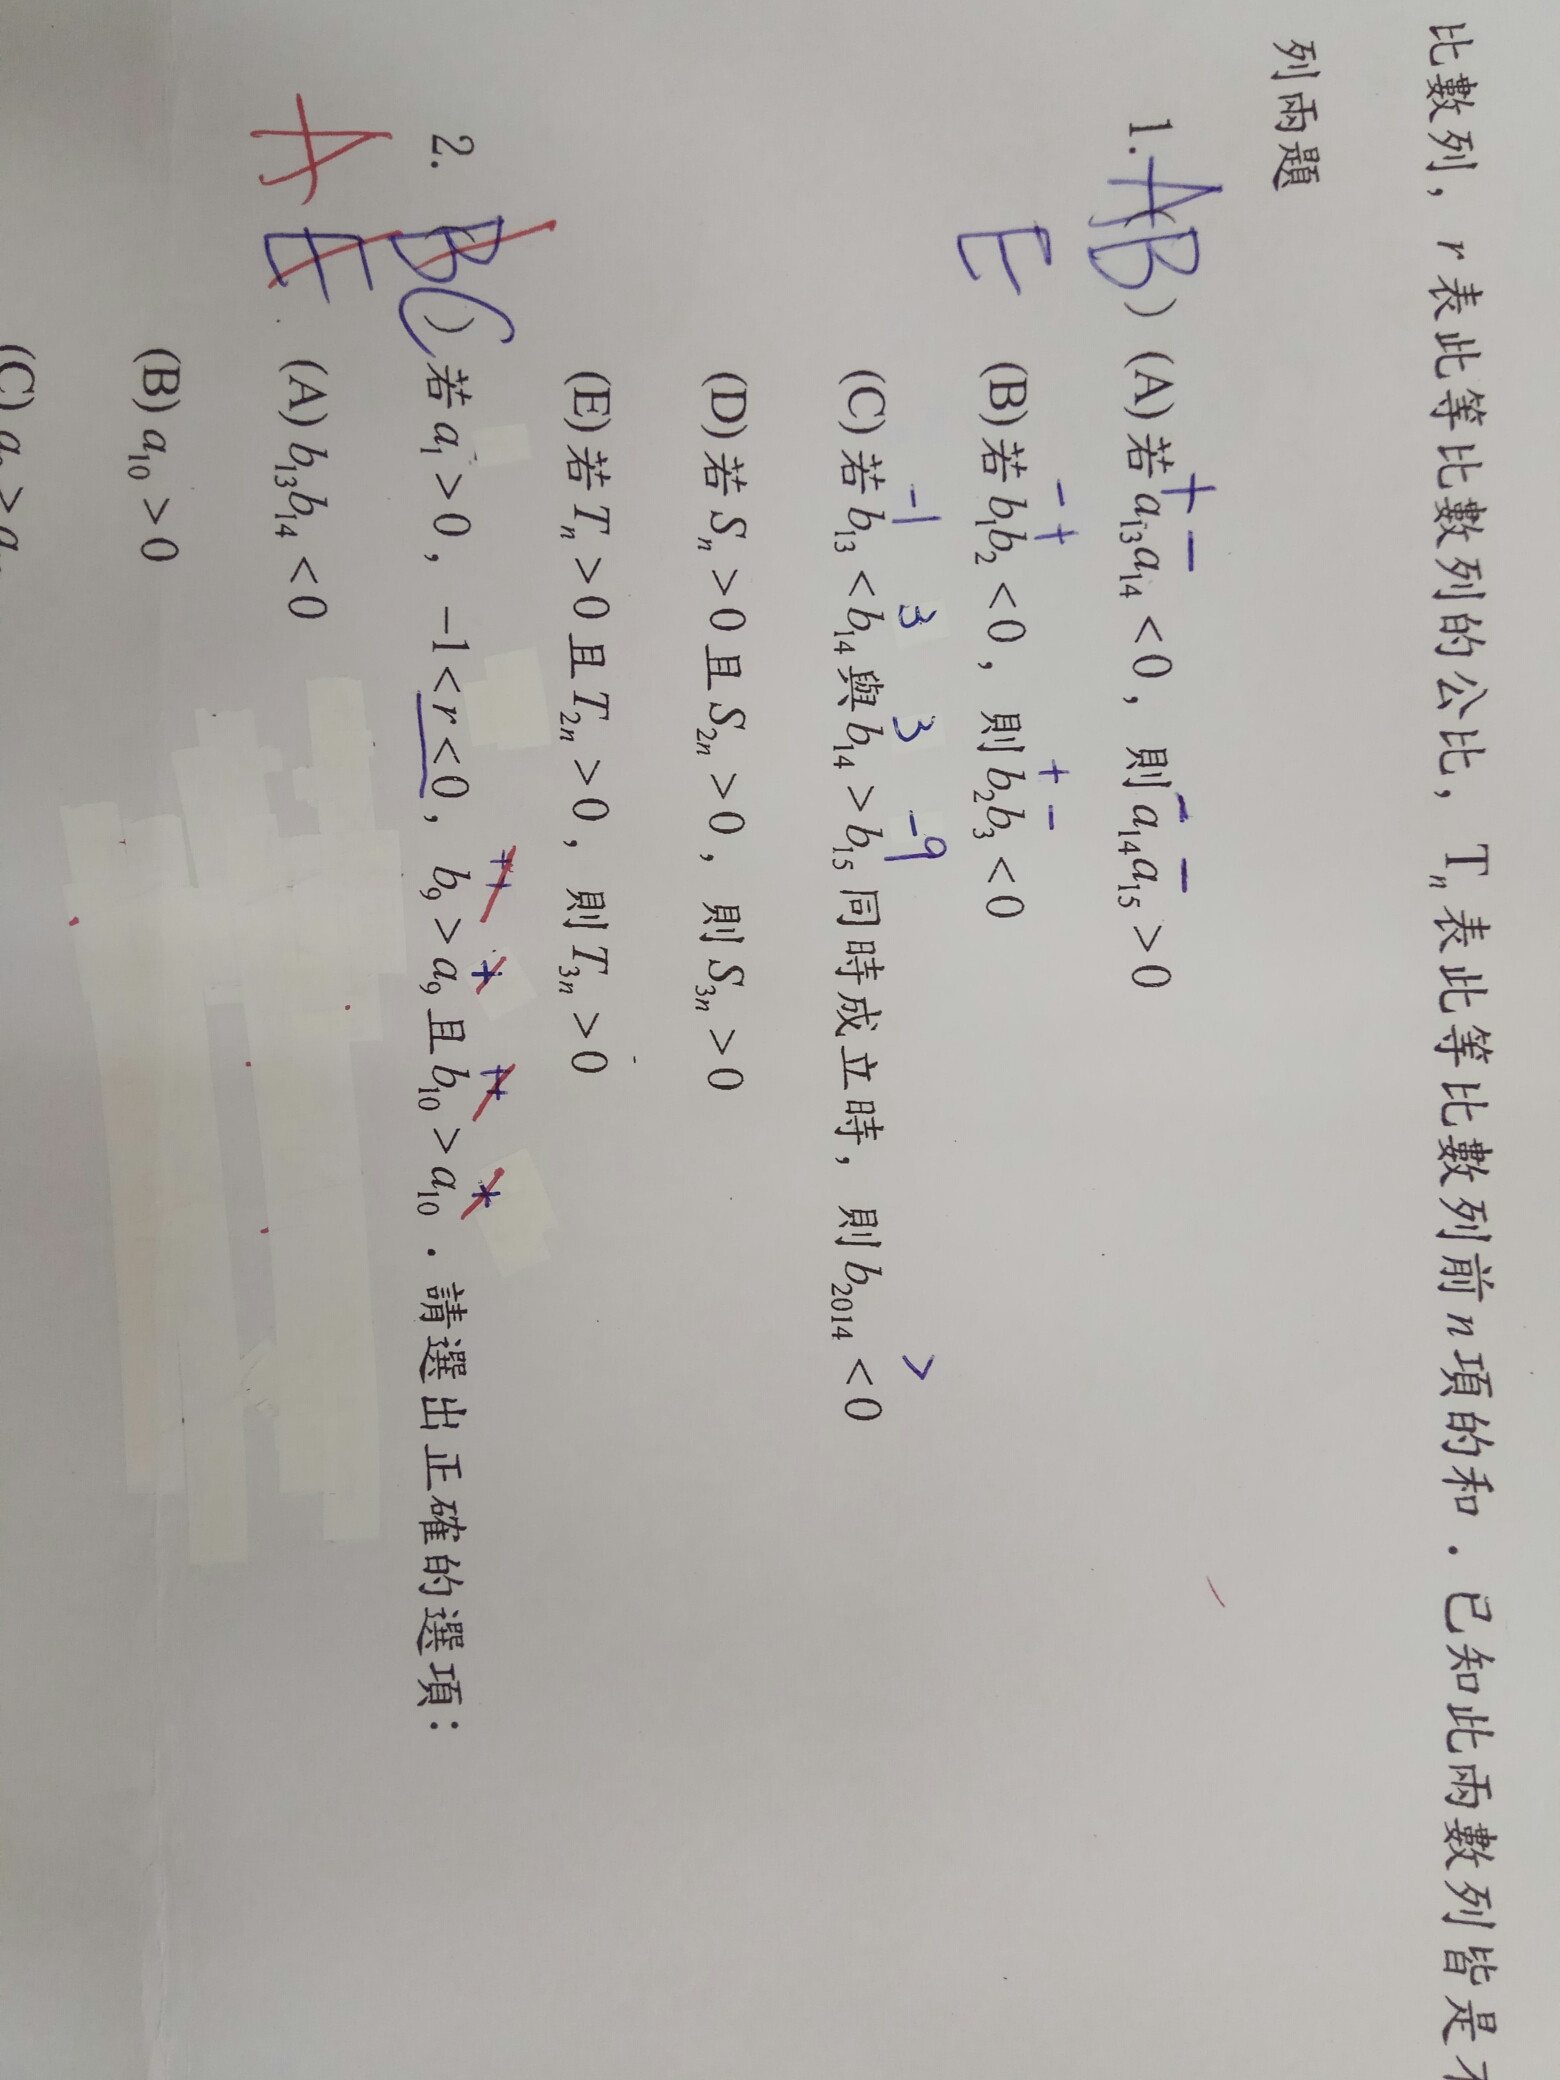 比數列，r表此等比數列的公比，Tn表此等比數列前n項的和．已知此兩數列皆是
列兩題
1.(AB) (A)若a13a14<0，則a14a15>0
+ − − −
E (B)若b1b2<0，則b2b3<0
− + + −
(C)若b13<b14與b14>b15同時成立時，則b2014<0
-1 3 3 -9 >
(D)若Sn>0且S2n>0，則S3n>0
(E)若Tn>0且T2n>0，則T3n>0
2.(BC)若a1>0，−1<r<0，b9>a9且b10>a10．請選出正確的選項：
A E (A)b13b14<0
(B)a10>0